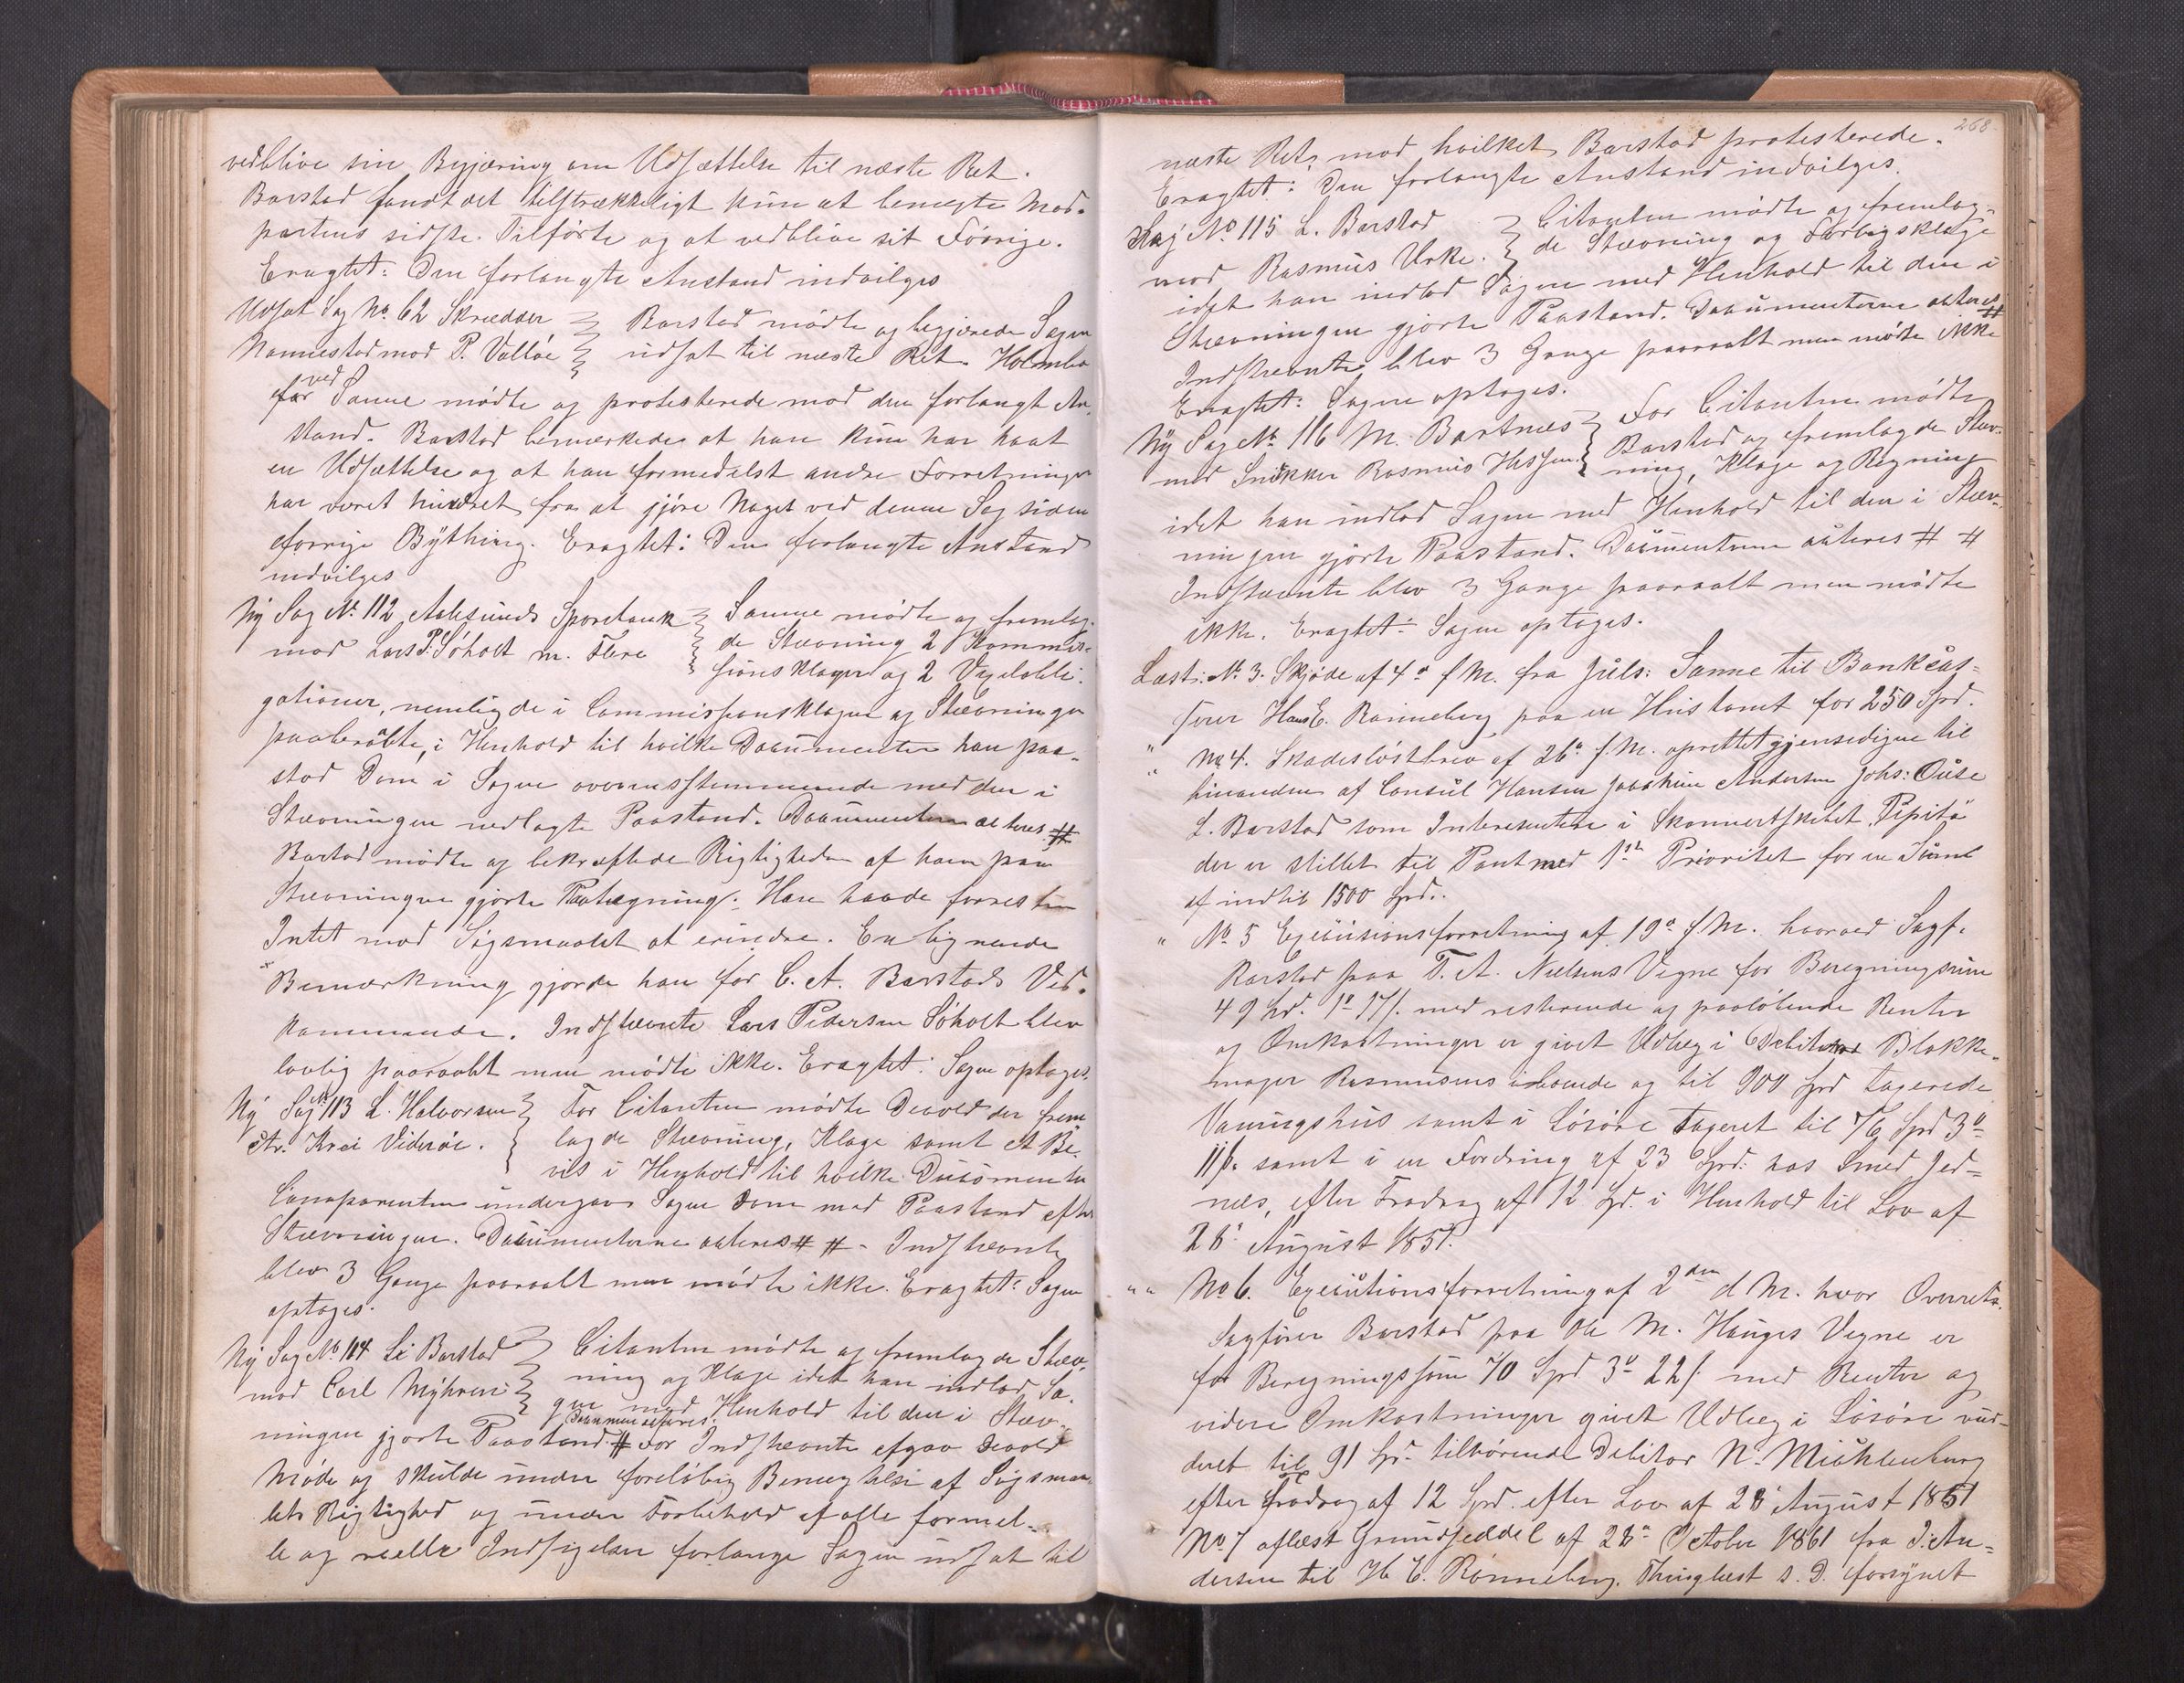 vedblive sin Begjæring om Udsættelse til næste Ret.
Barstad fandt det tilstrækkeligt kun at benegte Mod-
partens sidste Tilførte og at vedblive sit Forrige.
Eragtet: Den forlangte Anstand indvilges
Udsat Sag No. 62 Skrædder Barstad mødte og begjærede Sagen
mod P. Valløe udsat til næste Ret. Holmbo
for ved Sanne mødte og protesterede mod den forlangt An-
stand. Barstad bemærkede at han kun har havt
en Udsættelse og at han formedelst andre Forretninger
har været hindret fra at gjöre Noget ved denne Sag siden
forrige Bything. Eragtet: Den forlangte Anstand
indvilges
Ny Sag No. 112 Aalesunds Sparebank Samme mødte og fremlag-
mod Lars P. Søholt m. Flere de Stævning 2 Kommis-
sionsklager og 2 Vexelobli-
gationer, nemlig de i Commissionsklagen og Stævningen
paaberaabte, i Henhold til hvilke Documenter han paa-
stod Dom i Sagen overensstemmende med den i
Stævningen nedlagte Paastand. Documenterne acteres #
Barstad mødte og bekræftede Rigtigheden af ham paa
Stævningen gjorte Paategning. Han havde forresten
Intet mod Søgsmaalet at erindre. En lignende
Bemærkning gjorde han for C. A. Barstads Ved-
kommende. Indstævnte Lars Pedersen Søholt blev
lovlig paaraabt men mødte ikke. Eragtet: Sagen optages.
Ny Sag No 113 L. Halvorsen For Citanten mødte Devold der frem
Ctr. Knei Viderøe. lagde Stævning, Klage samt et Be-
vis i Henhold til hvilke Documenter
Comparenten undergav Sagen Dom med Paastand efter
Stævningen. Documenterne acteres # # - Indstævnte
blev 3 Gange paaraabt men mødte ikke. Eragtet: Sagen
optages.
Ny Sag No 114 L. Barstad Citanten mødte og fremlagde Stæv-
mod Carl Myhren ning og Klage idet han indlod Sa-
gen med Henhold til den i Stæv-
Documen acteres.
ningen gjorte Paastand. # For Indstævnte afgav Devold
Møde og skulde under foreløbig Benegtelse af Søgsmaa-
lets Rigtighed og under Forbehold af alle formel-
le og reelle Indsigelser forlange Sagen udsat til
268.
næste Ret, mod hvilket Barstad protesterede.
Eragtet: Den forlangte Anstand indvilges.
Sag No 115 L. Barstad Citanten mødte og fremlag-
mod Rasmus Urke. de Stævning og Forligsklage
idet han indlod Sagen med Henhold til den i
Stævningen gjorte Paastand. Documenterne acteres #
Indstævnte blev 3 Gange paaraabt men mødte ikke
Eragtet: Sagen optages.
Ny Sag No 116 M. Bartnes For Citanten mødte
mod Snekker Rasmus Barstad og fremlagde Stæv-
ning, Klage og Regning
idet han indlod Sagen med Henhold til den i Stæv-
ningen gjorte Paastand. Documenterne acteres # #
Indstævnte blev 3 Gange paaraabt men mødte
ikke. Eragtet: Sagen optages.
Læst: No 3. Skjøde af 4de f. M. fra Sanne til Bankcas-
serer Hans E. Rønneberg paa en Hustomt for 250 Spd.
" No 4. Skadesløsbrev af 26de f. M. oprettet gjensedigen til
hinanden af Consul Hansen Joachim Andersen Johs:
L. Barstad som Interesentere i Skonnertskibet "Pepita"
der er stillet til Pant med 1ste Prioritet for en Summ
af indtil 1500 Spd..
" No 5 Executionsforretning af 19de f. M. hvorved Sagf.
Barstad paa T. A. Nielsens Vegne for Beregningsum
49 Spd. 1 # 17 ß. med resterende og paaløbende Renter
og Omkostninger er givet Udlæg i Debitors Blokke-
mager Rasmusens iboende og til 900 Spd taxerede
Vaaningshus samt i Løsøre taxeret til 76 Spd 3 #
11 ß. samt i en Fordring af 23 Spd: hos Smed Jed-
næs, efter Fradrag af 12 Spd. i Henhold til Lov af
28de August 1851.
" " No 6. Executionsforretning af 2den d. M. hvor Overrets
Sagfører Barstad paa Ole M. Hauges Vegne er
for Beregningssum 70 Spd 3 # 22 ß med Renter og
videre Omkostninger givet Udlæg i Løsøre vur-
deret til 91 Spd. tilhørende Debitor N. Mecklenburg
efter Fradrag af 12 Spd. efter Lov af 28 August 1851
No 7 aflæst Grundseddel af 28de October 1861 fra J. An-
dersen til H. E. Rønneberg. Thinglæst s. D. forsynet